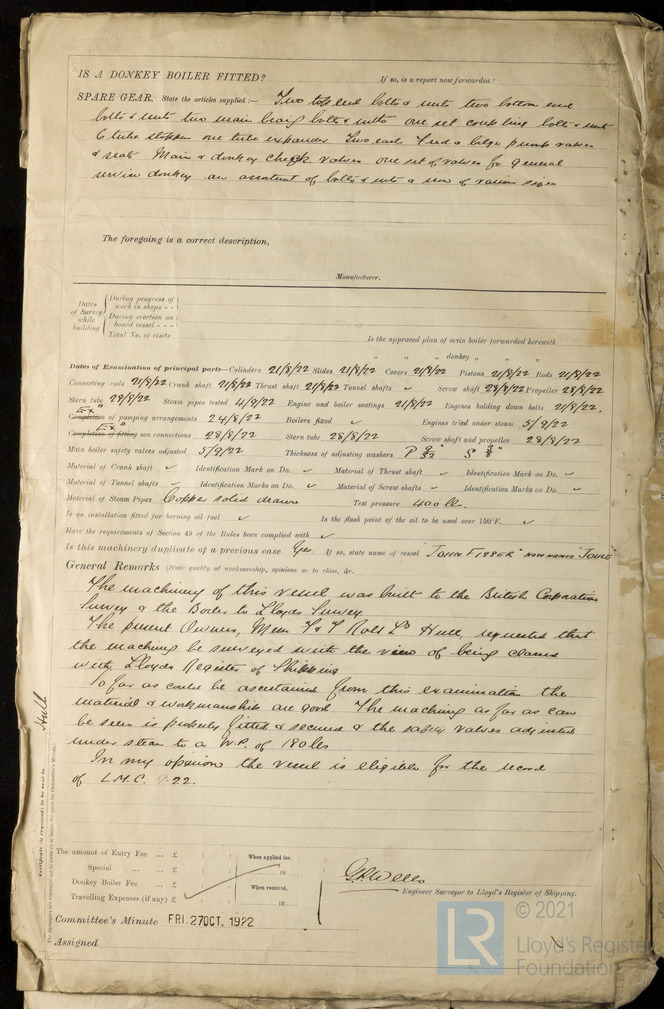 IS A DONKEY BOILER FITTED? If so, is a report now forwarded?
SPARE GEAR. State the articles supplied:— Two top end bolts & nuts two bottom end
bolts & nuts two main bearg bolts & nuts one set coupling bolts & nuts
6 tube stoppers one tube expander Two each feed & bilge pump valves
& seats Main & donkey check valves one set of valves for general
service donkey an assortment of bolts & nuts & iron of various sizes
The foregoing is a correct description,
Manufacturer.
Dates of Survey while building
During progress of work in shops - -
During erection on board vessel - - -
Total No. of visits
Is the approved plan of main boiler forwarded herewith
" " " donkey " " "
Dates of Examination of principal parts—Cylinders 21/8/22 Slides 21/8/22 Covers 21/8/22 Pistons 21/8/22 Rods 21/8/22
Connecting rods 21/8/22 Crank shaft 21/8/22 Thrust shaft 21/8/22 Tunnel shafts ✓ Screw shaft 28/8/22 Propeller 28/8/22
Stern tube 29/8/22 Steam pipes tested 4/9/22 Engine and boiler seatings 21/8/22 Engines holding down bolts 21/8/22.
Ex n
Completion of pumping arrangements 24/8/22 Boilers fixed ✓ Engines tried under steam 5/9/22
Ex n
Completion of fitting sea connections 28/8/22 Stern tube 28/8/22 Screw shaft and propeller 28/8/22
Main boiler safety valves adjusted 5/9/22 Thickness of adjusting washers P 9/32" S 3/8"
Material of Crank shaft ✓ Identification Mark on Do. ✓ Material of Thrust shaft ✓ Identification Mark on Do. ✓
Material of Tunnel shafts ✓ Identification Marks on Do. ✓ Material of Screw shafts ✓ Identification Marks on Do. ✓
Material of Steam Pipes Copper solid drawn Test pressure 400 lb.
Is an installation fitted for burning oil fuel ✓ Is the flash point of the oil to be used over 150°F. ✓
Have the requirements of Section 49 of the Rules been complied with ✓
Is this machinery duplicate of a previous case Yes If so, state name of vessel "JOHN FISSER" NOW NAMED "JOULE"
General Remarks (State quality of workmanship, opinions as to class, &c.
The machinery of this vessel was built to the British Corporation
Survey & the Boiler to Lloyds Survey
The present Owners, Messrs Hull, requested that
the machinery be surveyed with the view of being classed
with Lloyds Register of Shipping
So far as could be ascertained from this examination the
material & workmanship are good The machinery as far as can
be seen is properly fitted & secured & the safety valves adjusted
under steam to a W.P. of 180 lbs
In my opinion the vessel is eligible for the record
of L.M.C. 9.22.
Certificate (if required) to be sent to Hull
The amount of Entry Fee ... £ : : When applied for,
Special ... ... £ : : 19
Donkey Boiler Fee ... £ : : When received,
Travelling Expenses (if any) £ : : 19
G.R. Wells
Engineer Surveyor to Lloyd's Register of Shipping.
Committee's Minute FRI. 27 OCT. 1922
Assigned
LR
© 2021
Lloyd's Register
Foundation